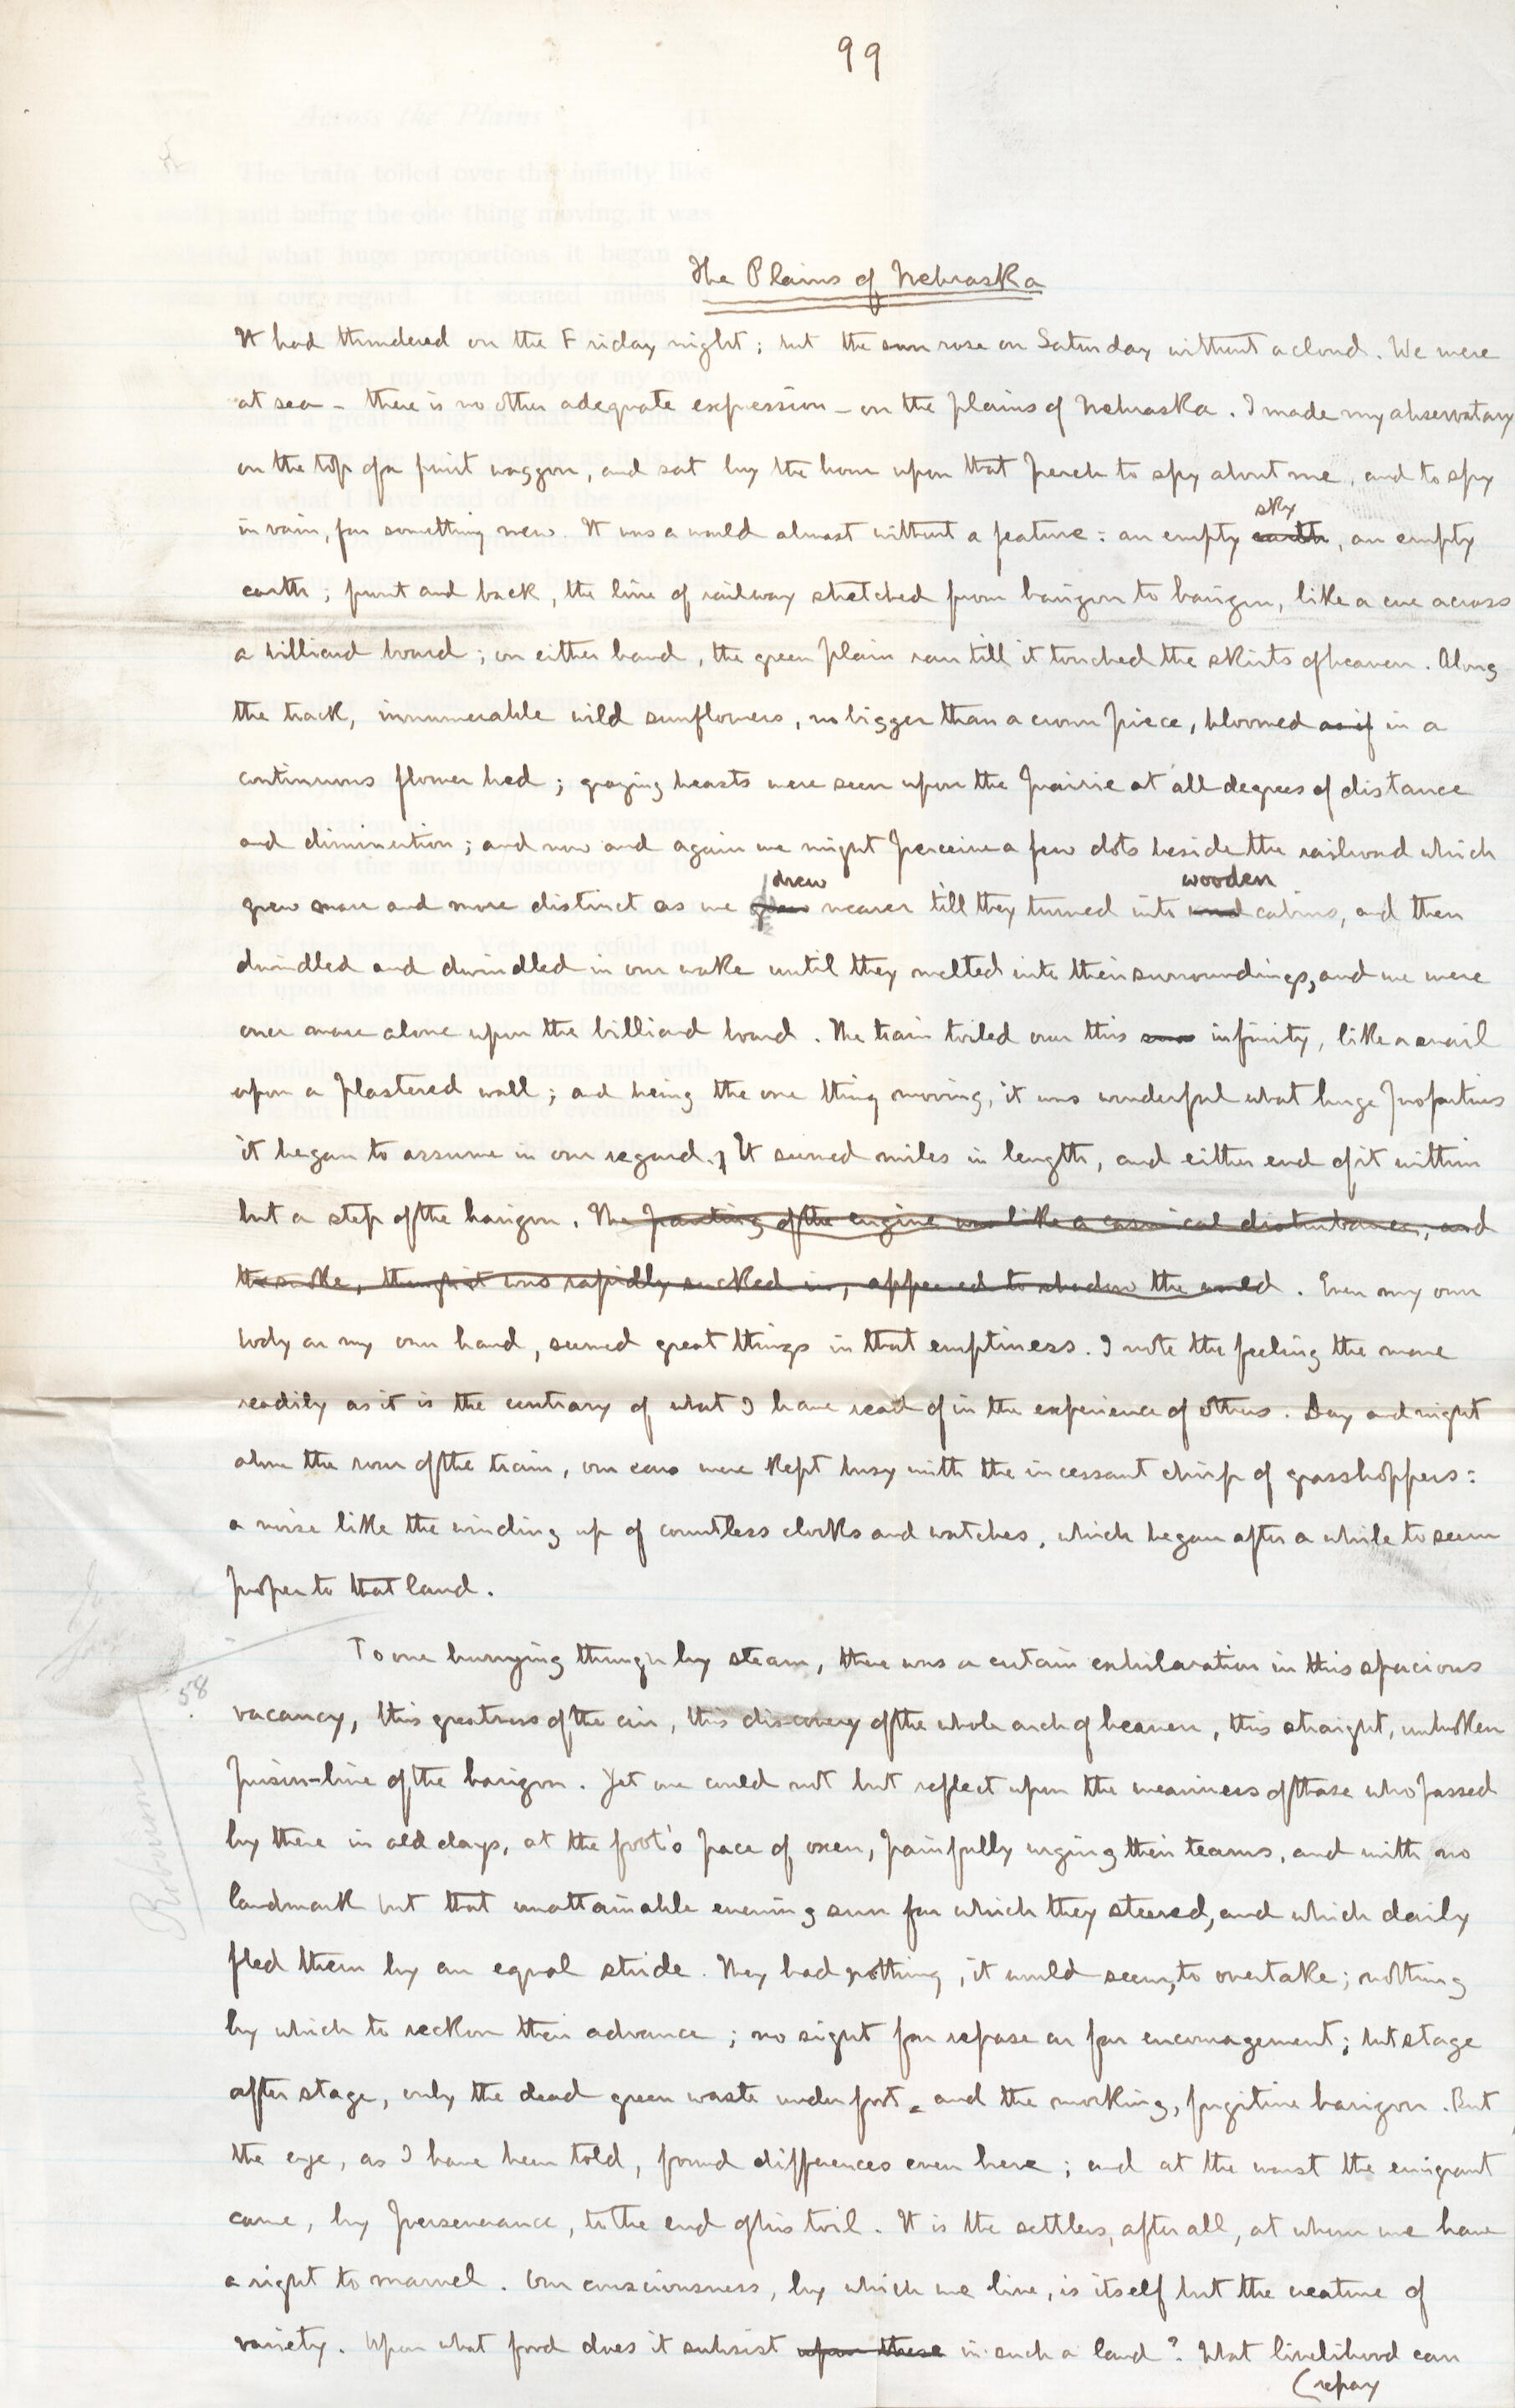 99
The Plains of Nebraska
It had thundered on the Friday night; but the sun rose on Saturday without a cloud. We were
at sea – there is no other adequate expression – on the plains of Nebraska. I made my observatory
on the top of a fruit waggon, and sat by the hour upon that perch to spy about me, and to spy
in vain, for something new. It was a world almost without a feature: an empty sky earth, an empty
earth; front and back, the line of railway stretched from horizon to horizon, like a cue across
a billiard board; on either hand, the green plain ran till it touched the skirts of heaven. Along
the track, innumerable wild sunflowers, no bigger than a crown piece, bloomed as if in a
continuous flower bed; grazing beasts were seen upon the prairie at all degrees of distance
and diminution; and now and again we might perceive a few dots beside the railroad which
grew more and more distinct as we drew grew nearer till they turned into wooden wood cabins, and then
dwindled and dwindled in our wake until they melted into their surroundings, and we were
once more alone upon the billiard board. The train toiled over this infinity, like a snail
upon a plastered wall; and being the one thing moving, it was wonderful what huge proportions
it began to assume in our regard. It seemed miles in length, and either end of it within
but a step of the horizon. The panting of the engine was like a cosmical disturbance, and
the smoke, though it was rapidly sucked in, appeared to shadow the world. Even my own
body or my own hand, seemed great things in that emptiness. I note the feeling the more
readily as it is the contrary of what I have read of in the experience of others. Day and night
above the roar of the train, our ears were kept busy with the incessant chirp of grasshoppers:
a noise like the winding up of countless clocks and watches, which began after a while to seem
proper to that land.
To one hurrying through by steam, there was a certain exhilaration in this spacious
58
vacancy, this greatness of the air, this discovery of the whole arch of heaven, this straight, unbroken
prison-line of the horizon. Yet one could not but reflect upon the weariness of those who passed
by there in old days, at the foot's pace of oxen, painfully urging their teams, and with no
landmark but that unattainable evening sun for which they steered, and which daily
fled them by an equal stride. They had nothing, it would seem, to overtake; nothing
by which to reckon their advance; no sight for repose or for encouragement; but stage
after stage, only the dead green waste under foot, and the mocking, fugitive horizon. But
the eye, as I have been told, found differences even here; and at the worst the emigrant
came, by perseverance, to the end of his toil. It is the settlers, after all, at whom we have
a right to marvel. Our consciousness, by which we live, is itself but the creature of
variety. Upon what food does it subsist upon these in such a land? What livelihood can
(repay